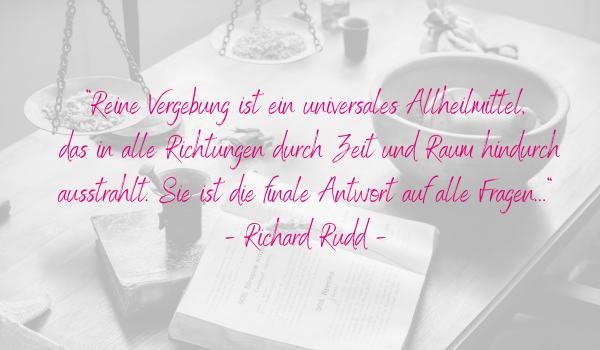 "Reine Vergebung ist ein universales Allheilmittel,
das in alle Richtungen durch Zeit und Raum hindurch
ausstrahlt. Sie ist die finale Antwort auf alle Fragen..."
- Richard Rudd -